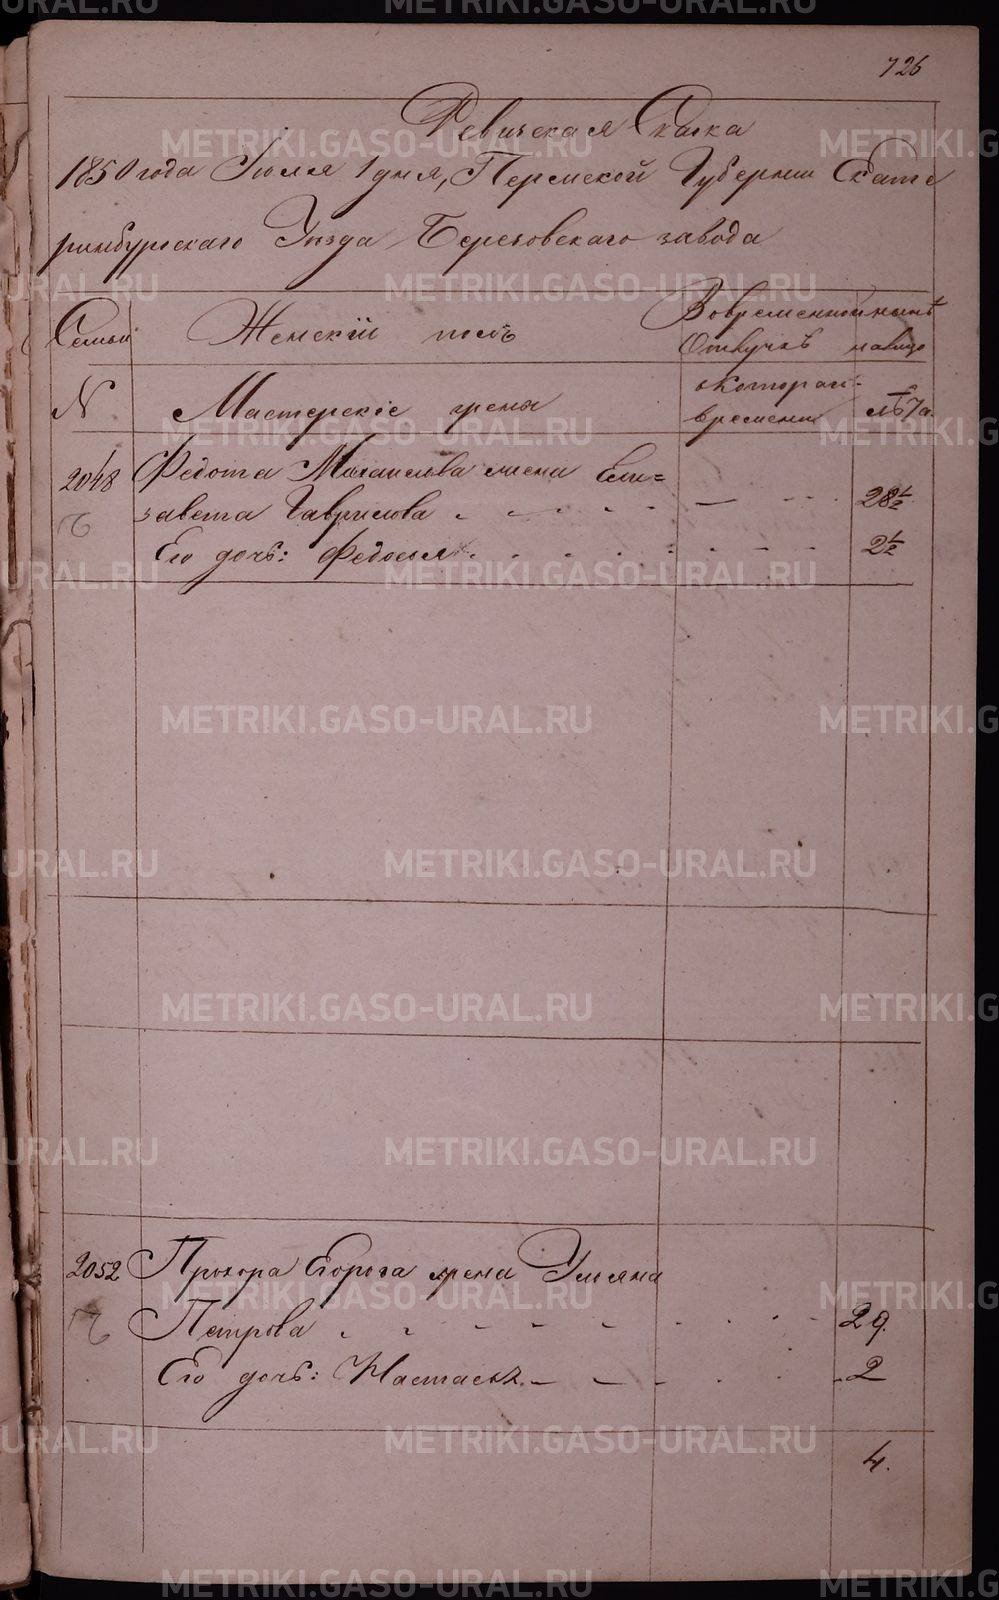 726
Ревизская Сказка
1850 года Iюля 1 дня, Пермской Губернии Екате
ринбургскаго Уѣзда Березовскаго завода
Семьи
Женскiй полъ
Во временной
Отлучкѣ
нынѣ
налицо
№
Мастерскiе жены
с котораго
времени
лѣта
2048
Федота Михаилова жена Ели=
завета Гаврилова
28 1/2
Его дочь: Федосья
2 1/2
2052
Прохора Егорова жена Ульяна
Петрова
29.
Его дочь: Настасья
2
4.
METRIKI.GASO-URAL.RU